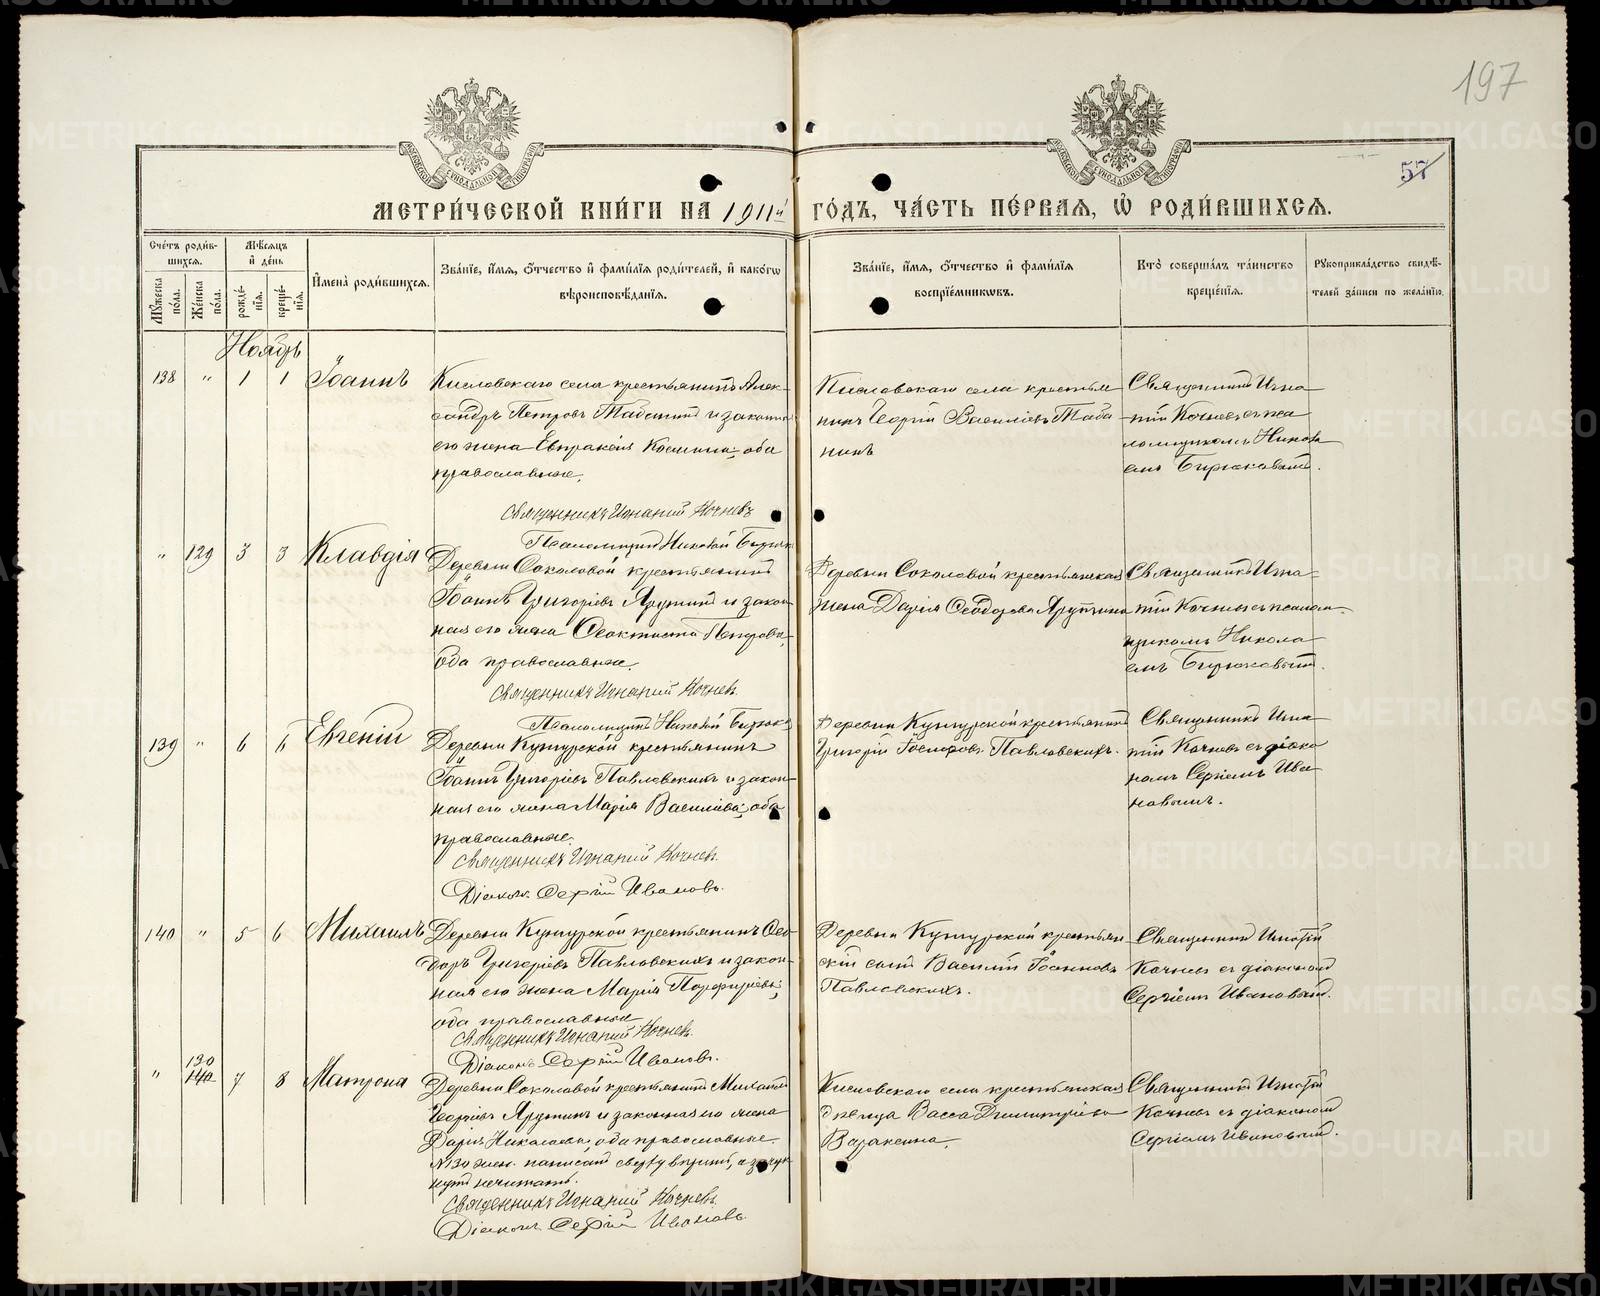 197
57
МЕТРИ́ЧЕСКОЙ КНИ́ГИ НА 1911й ГО́ДЪ, ЧА́СТЬ ПЕ́РВАЯ, Ѡ҆ РОДИ́ВШИХСЯ.
Сче́тъ роди́в-
шихся.
Мꙋ́жеска по́ла.
Же́нска по́ла.
Мѣ́сяцъ
и҆ де́нь
рожде́-
нїя.
креще́-
нїя.
И҆мена̀ роди́вшихся.
Зва́нїе, и҆́мя, ѻ҆́тчество и҆ фами́лїя роди́телей, и҆ како́гѡ
вѣроисповѣ́данїя.
Зва́нїе, и҆́мя, ѻ҆́тчество и҆ фами́лїя
воспрїе́мникѡвъ.
Кто̀ соверша́лъ та́инство
креще́нїя.
Рꙋкоприкла́дство свидѣ́-
телей за́писи по жела́нїю.
Ноябрь
138 " 1 1 Іоаннъ
Кисловскаго села крестьянинъ Алек-
сандръ Петровъ Табанинъ и законная
его жена Евпраксія Косьмина, оба
православные.
Священникъ Игнатій Кочневъ
Псаломщикъ Николай Бирюковъ
Кисловскаго села крестья
нинъ Георгій Василіевъ Таба
нинъ
Священникъ Игна-
тій Кочневъ съ пса
ломщикомъ Никола
емъ Бирюковымъ.
" 129 3 3 Клавдія
Деревни Соколовой крестьянинъ
Іоаннъ Григоріевъ Ярутинъ и закон-
ная его жена Ѳеоктиста Петрова,
оба православные.
Священникъ Игнатій Кочневъ.
Псаломщикъ Николай Бирюковъ
Деревни Соколовой крестьянская
жена Дарія Ѳеодорова Ярутина
Священникъ Игна-
тій Кочневъ съ псалом-
щикомъ Никола
емъ Бирюковымъ.
139 " 6 6 Евгеній
Деревни Кунгурской крестьянинъ
Іоаннъ Григоріевъ Павловскихъ и закон-
ная его жена Марія Василіева, оба
православные.
Священникъ Игнатій Кочневъ.
Діаконъ Сергій Ивановъ.
Деревни Кунгурской крестьянинъ
Григорій Іосифовъ Павловскихъ.
Священникъ Игна-
тій Кочневъ съ діако
номъ Сергіемъ Ива
новымъ.
140 " 5 6 Михаилъ
Деревни Кунгурской крестьянинъ Ѳео-
доръ Григоріевъ Павловскихъ и закон-
ная его жена Марія Порфиріева,
оба православные
Священникъ Игнатій Кочневъ.
Діаконъ Сергій Ивановъ.
Деревни Кунгурской крестьян
скій сынъ Василій Іоанновъ
Павловскихъ.
Священникъ Игнатій
Кочневъ съ діакономъ
Сергіемъ Ивановымъ.
" 130 140 7 8 Матрона
Деревни Соколовой крестьянинъ Михаилъ
Георгіевъ Ярутинъ и законная его жена
Дарія Николаева, оба православные.
№ 130 жен. написанъ сверху вѣрить, а зачерк-
нутъ не читать.
Священникъ Игнатій Кочневъ.
Діаконъ Сергій Ивановъ
Кисловскаго села крестьянская
дѣвица Васса Димитріева
Вараксина.
Священникъ Игнатій
Кочневъ съ діакономъ
Сергіемъ Ивановымъ.
METRIKI.GASO-URAL.RU